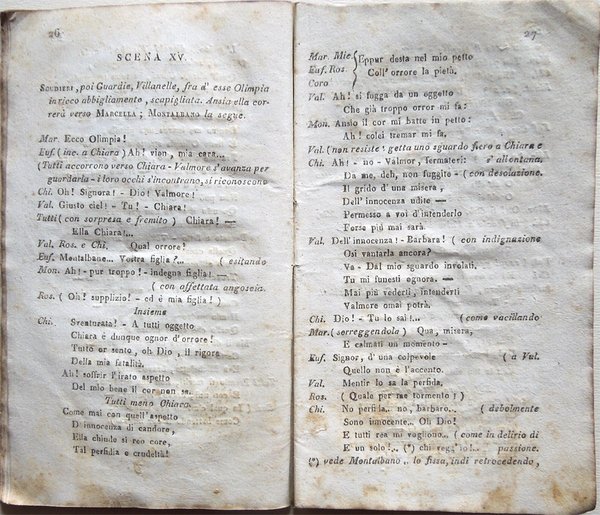 26
SCENA XV.
SCUDIERI, poi Guardie, Villanelle, fra d' esse Olimpia
in ricco abbigliamento, scapigliata. Ansia ella cor-
rerà verso MARCELLA; MONTALBANO la segue.
Mar. Ecco Olimpia!
Euf. (inc. a Chiara) Ah! vien, mia cara...
(Tutti accorrono verso Chiara - Valmore s'avanza per
guardarla - i loro occhi s'incontrano, si riconoscono
Chi. Oh! Signora! - Dio! Valmore!
Val. Giusto ciel! - Tu! - Chiara!
Tutti (con sorpresa e fremito) Chiara! —
Ella Chiara!...
Val. Ros. e Chi. Qual orrore!
Euf. Montalbano... Vostra figlia?... (esitando
Mon. Ah! - pur troppo! - indegna figlia! —
(con affettata angoscia.
Ros. ( Oh! supplizio! - ed è mia figlia! )
Insieme
Chi. Sventurata! - A tutti oggetto
Chiara è dunque ognor d'orrore!
Tutto or sento, oh Dio, il rigore
Della mia fatalità.
Ah! soffrir l'irato aspetto
Del mio bene il cor non sa.
Tutti meno Chiara.
Come mai con quell'aspetto
D'innocenza di candore,
Ella chiude sì reo core,
Tal perfidia e crudeltà!
27
Mar. Mic
Euf. Ros.
Coro
Eppur desta nel mio petto
Coll' orrore la pietà.
Val. Ah! si fogga da un oggetto
Che già troppo orror mi fa:
Mon. Ansio il cor mi batte in petto:
Ah! colei tremar mi fa,
Val. (non resiste: getta uno sguardo fiero a Chiara e
Chi. Ah! - no - Valmor, fermatevi: s'allontana.
Da me, deh, non fuggite - (con desolazione.
Il grido d'una misera,
Dell' innocenza udite —
Permesso a voi d'intenderlo
Forse più mai sarà.
Val. Dell'innocenza! - Barbara! ( con indignazione
Osi vantarla ancora?
Va - Dal mio sguardo involati.
Tu mi funesti ognora. —
Mai più vederti, intenderti
Valmore omai potrà.
Chi. Dio! - Tu lo sai!... (come vacillando
Mar. (sorreggendola) Qua, misera,
E calmati un momento -
Euf. Signor, d' una colpevole ( a Val.
Quello non è l'accento.
Val. Mentir lo sa la perfida.
Ros. ( Quale per me tormento! )
Chi. No perfida... no, barbaro.. ( debolmente
Sono innocente... Oh Dio!
E tutti rea mi vogliono... ( come in delirio di
E un solo!.. (*) chi regg'io!.. passione.
(*) vede Montalbano.. lo fissa, indi retrocedendo,